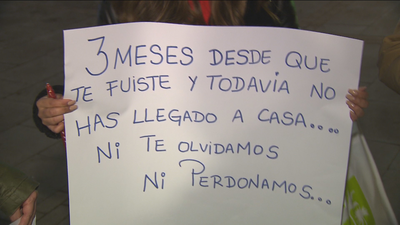 3 MESES DESDE QUE
TE FUISTE Y TODAVIA NO
HAS LLEGADO A CASA....
NI TE OLVIDAMOS
NI PERDONAMOS...